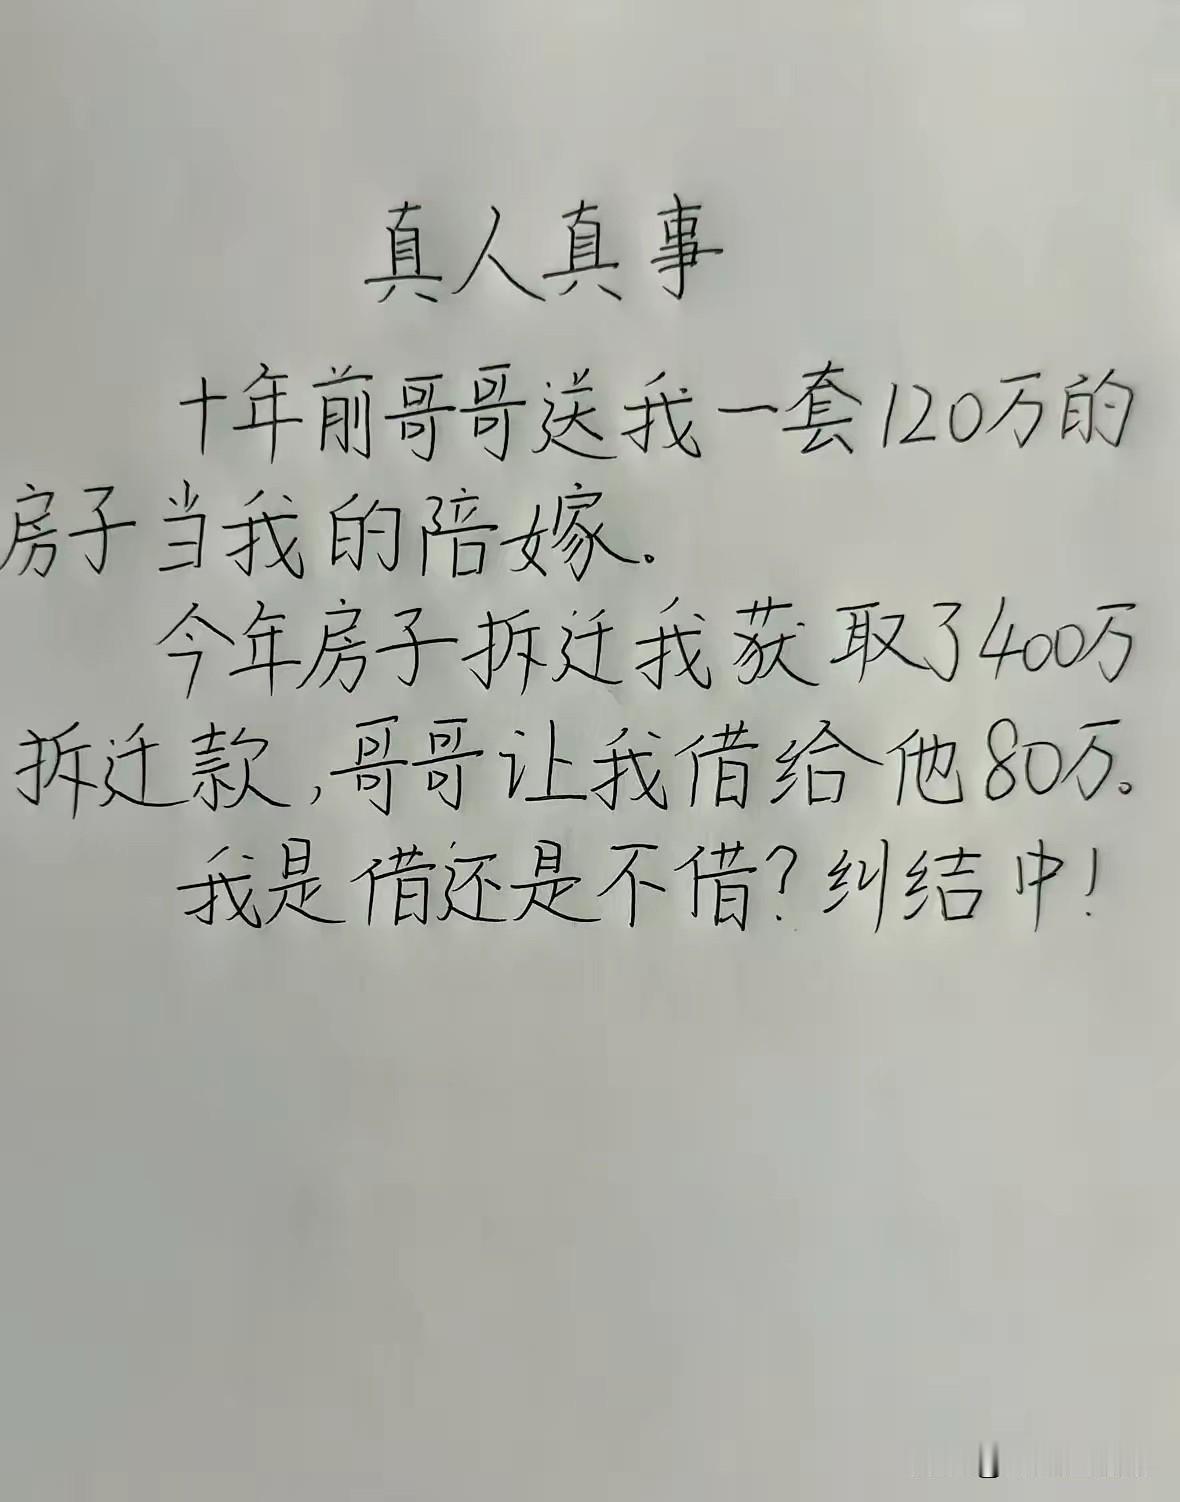 真人真事
十年前哥哥送我一套120万的
房子当我的陪嫁。
今年房子拆迁我获取了400万
拆迁款,哥哥让我借给他80万。
我是借还是不借?纠结中!